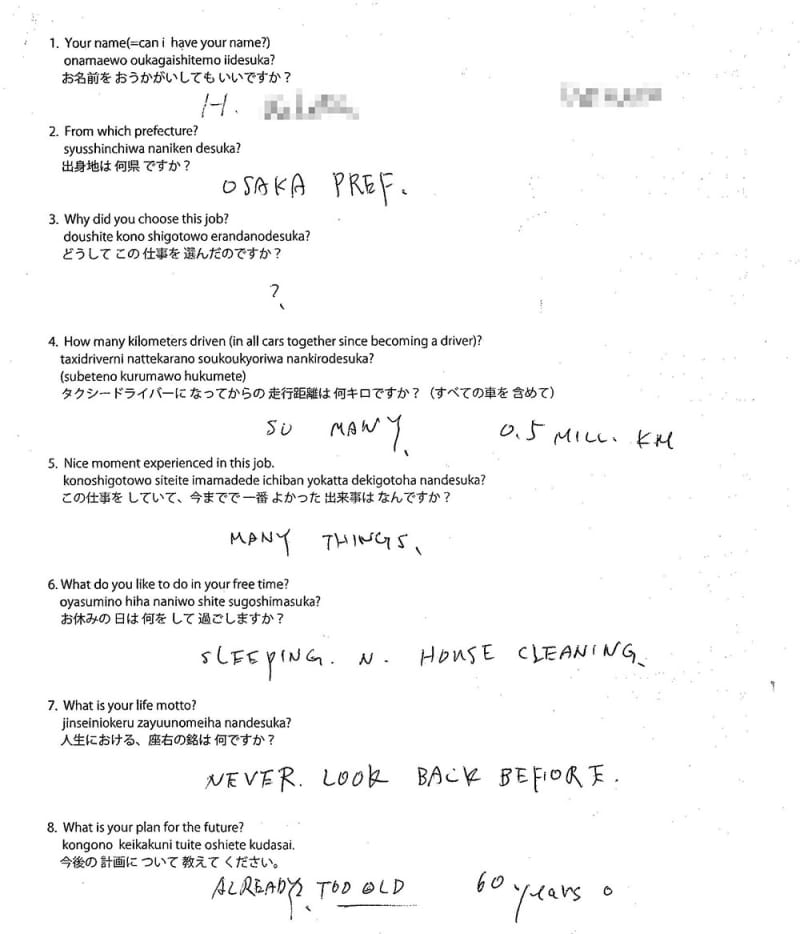 1. Your name(=can i have your name?)
onamaewo oukagaishitemo iidesuka?
お名前を おうかがいしても いいですか？
H.
2. From which prefecture?
syusshinchiwa naniken desuka?
出身地は 何県 ですか？
OSAKA PREF.
3. Why did you choose this job?
doushite kono shigotowo erandanodesuka?
どうして この 仕事を 選んだのですか？
?
4. How many kilometers driven (in all cars together since becoming a driver)?
taxidriverni nattekarano soukoukyoriwa nankirodesuka?
(subeteno kurumawo hukumete)
タクシードライバーに なってからの 走行距離は 何キロですか？（すべての車を 含めて）
SO MANY. 0.5 MILL. KM
5. Nice moment experienced in this job.
konoshigotowo siteite imamadede ichiban yokatta dekigotoha nandesuka?
この仕事を していて、今までで 一番 よかった 出来事は なんですか？
MANY THINGS.
6. What do you like to do in your free time?
oyasumino hiha naniwo shite sugoshimasuka?
お休みの 日は 何を して 過ごしますか？
SLEEPING. N. HOUSE CLEANING.
7. What is your life motto?
jinseiniokeru zayuunomeiha nandesuka?
人生における、座右の銘は 何ですか？
NEVER. LOOK BACK BEFIORE.
8. What is your plan for the future?
kongono keikakuni tuite oshiete kudasai.
今後の 計画に ついて 教えて ください。
ALREADY. TOO OLD 60 years o